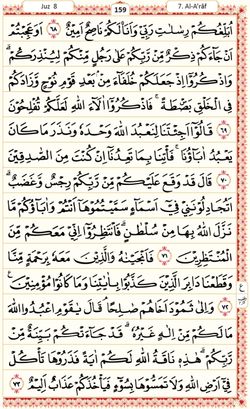 Juz 8
159
7. Al-A'râf
اُبَلِّغُكُمْ رِسٰلٰتِ رَبِّيْ وَاَنَا۠ لَكُمْ نَاصِحٌ اَمِيْنٌ ٦٨ اَوَعَجِبْتُمْ
اَنْ جَآءَكُمْ ذِكْرٌ مِّنْ رَّبِّكُمْ عَلٰى رَجُلٍ مِّنْكُمْ لِيُنْذِرَكُمْ ۗ
وَاذْكُرُوْٓا اِذْ جَعَلَكُمْ خُلَفَآءَ مِنْۢ بَعْدِ قَوْمِ نُوْحٍ وَّزَادَكُمْ
فِى الْخَلْقِ بَصْۜطَةً ۚ فَاذْكُرُوْٓا اٰلَآءَ اللّٰهِ لَعَلَّكُمْ تُفْلِحُوْنَ
٦٩ قَالُوْٓا اَجِئْتَنَا لِنَعْبُدَ اللّٰهَ وَحْدَهٗ وَنَذَرَ مَا كَانَ
يَعْبُدُ اٰبَآؤُنَا ۚ فَأْتِنَا بِمَا تَعِدُنَآ اِنْ كُنْتَ مِنَ الصّٰدِقِيْنَ
٧٠ قَالَ قَدْ وَقَعَ عَلَيْكُمْ مِّنْ رَّبِّكُمْ رِجْسٌ وَّغَضَبٌ ۗ
اَتُجَادِلُوْنَنِيْ فِيْٓ اَسْمَآءٍ سَمَّيْتُمُوْهَآ اَنْتُمْ وَاٰبَآؤُكُمْ مَّا
نَزَّلَ اللّٰهُ بِهَا مِنْ سُلْطٰنٍ ۗ فَانْتَظِرُوْٓا اِنِّيْ مَعَكُمْ مِّنَ
الْمُنْتَظِرِيْنَ ٧١ فَاَنْجَيْنٰهُ وَالَّذِيْنَ مَعَهٗ بِرَحْمَةٍ مِّنَّا
وَقَطَعْنَا دَابِرَ الَّذِيْنَ كَذَّبُوْا بِاٰيٰتِنَا وَمَا كَانُوْا مُؤْمِنِيْنَ
٧٢ وَاِلٰى ثَمُوْدَ اَخَاهُمْ صٰلِحًا ۘ قَالَ يٰقَوْمِ اعْبُدُوا اللّٰهَ
مَا لَكُمْ مِّنْ اِلٰهٍ غَيْرُهٗ ۗ قَدْ جَآءَتْكُمْ بَيِّنَةٌ مِّنْ
رَّبِّكُمْ ۗ هٰذِهٖ نَاقَةُ اللّٰهِ لَكُمْ اٰيَةً فَذَرُوْهَا تَأْكُلْ
فِيْٓ اَرْضِ اللّٰهِ وَلَا تَمَسُّوْهَا بِسُوْٓءٍ فَيَأْخُذَكُمْ عَذَابٌ اَلِيْمٌ ٧٣